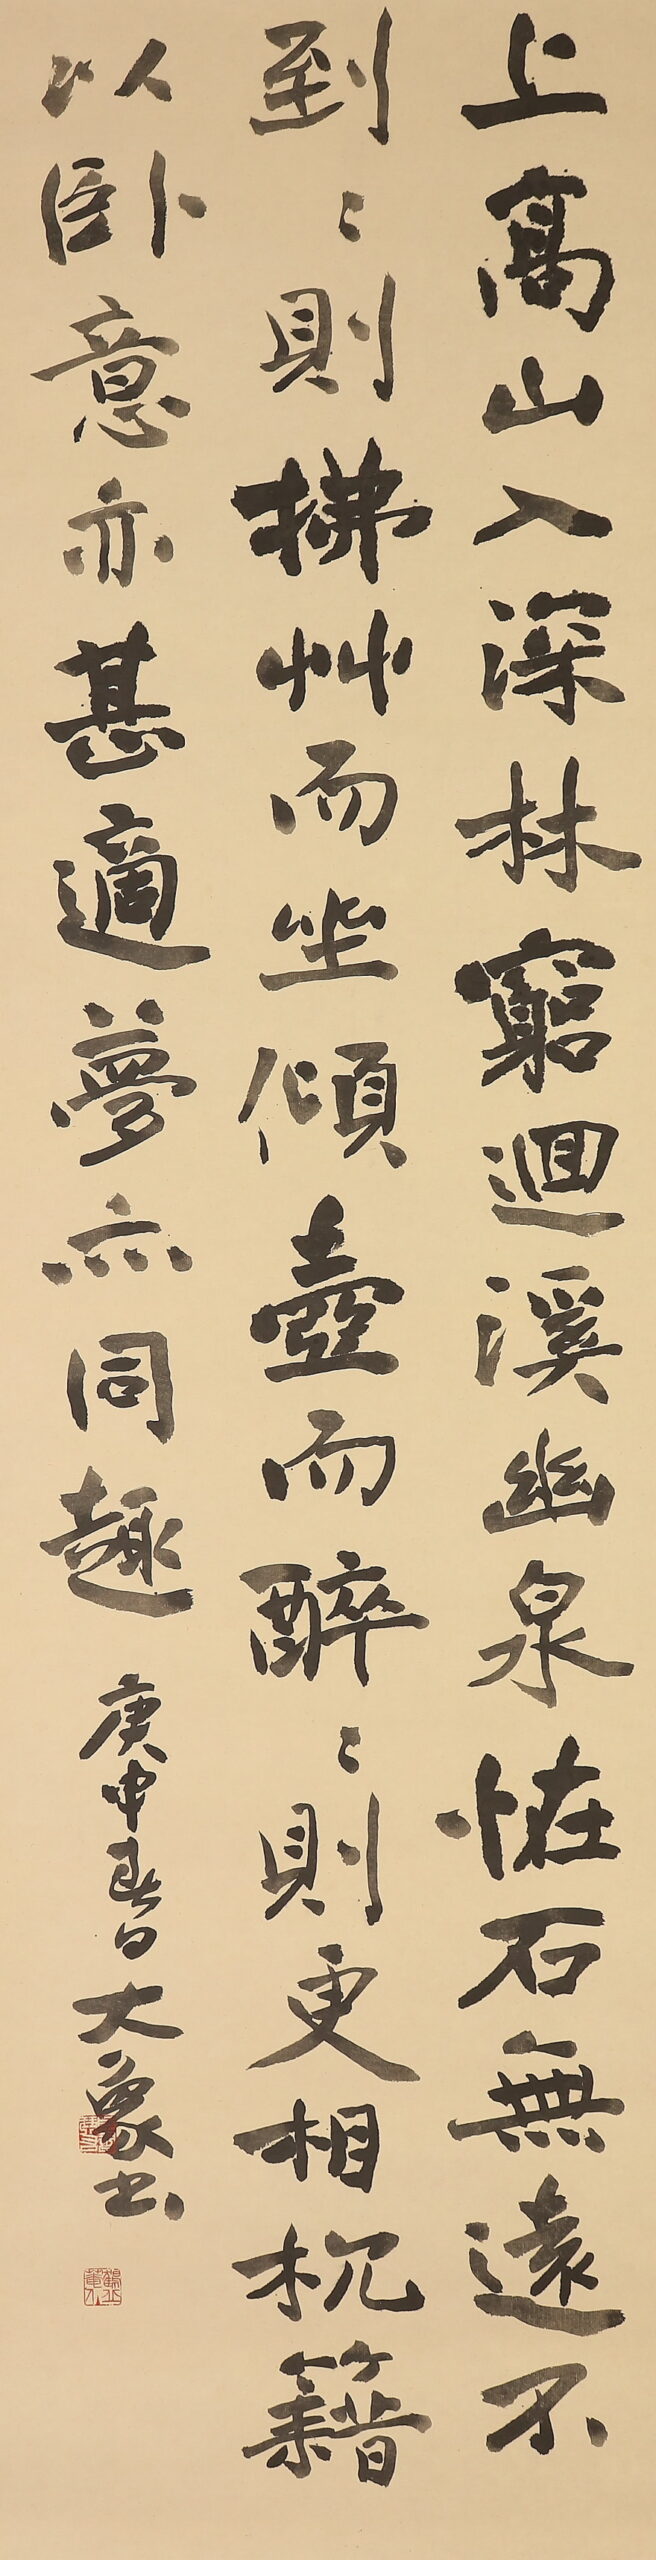 上髙山入深林窮迴溪幽泉恠石無遠不
到〻則拂艸而坐傾壺而醉〻則更相枕籍
以卧意亦甚適夢亦同趣
庚申春日大象書